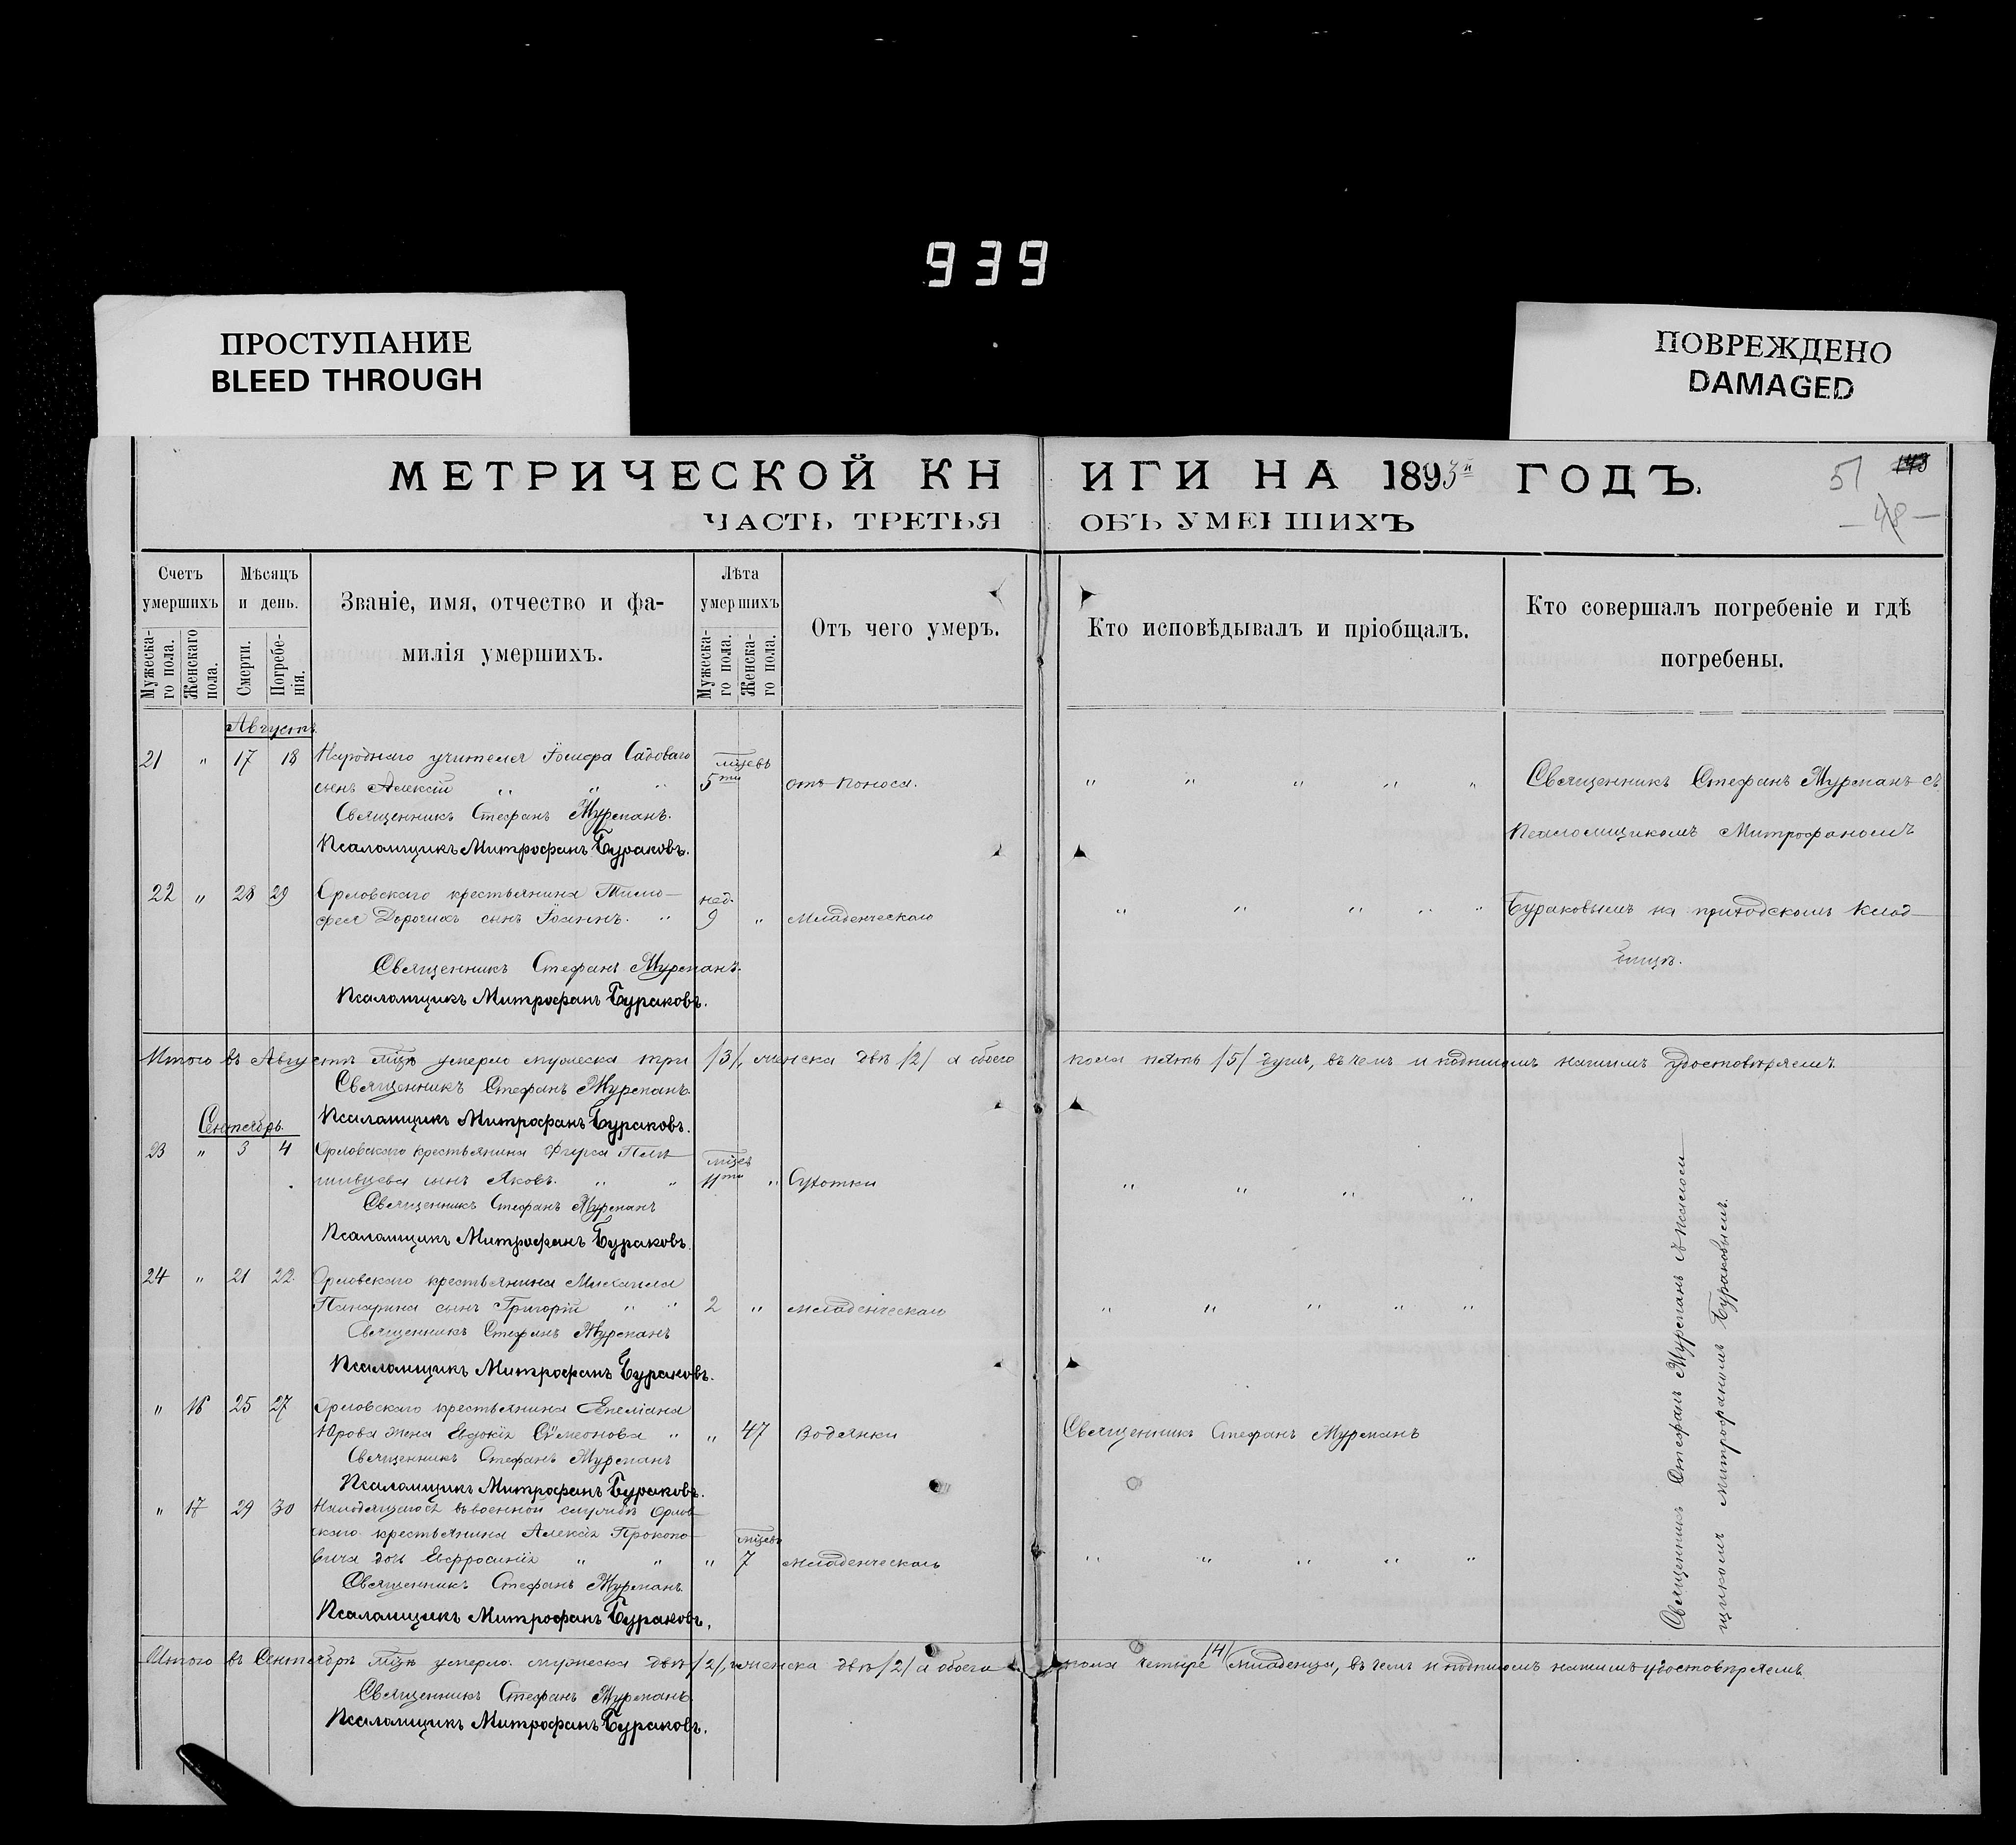 939
ПРОСТУПАНИЕ
BLEED THROUGH
ПОВРЕЖДЕНО
DAMAGED
МЕТРИЧЕСКОЙ КН ИГИ НА 1893й ГОДЪ.
51
143
— 48 —
ЧАСТЬ ТРЕТЬЯ ОБЪ УМЕРШИХЪ
Счетъ умершихъ
Мужеска-го пола.
Женскаго пола.
Мѣсяцъ и день.
Смерти.
Погребе-нія.
Званіе, имя, отчество и фа-
милія умершихъ.
Лѣта умершихъ
Мужеска-го пола.
Женска-го пола.
Отъ чего умеръ.
Кто исповѣдывалъ и пріобщалъ.
Кто совершалъ погребеніе и гдѣ
погребены.
Августъ.
21 " 17 18 Народнаго учителя Іосифа Садоваго мцевъ
сынъ Алексій " " " 5ти отъ поноса. " " " " " Священникъ Стефанъ Журманъ съ
Священникъ Стефанъ Журманъ.
Псаломщикомъ Митрофаномъ
Псаломщикъ Митрофанъ Бураковъ.
22 " 28 29 Орловскаго крестьянина Тимо- нед.
фея Дорогихъ сынъ Іоаннъ. " 9 " Младенческаго " " " " " Бураковымъ на приходскомъ клад-
бищѣ.
Священникъ Стефанъ Журманъ.
Псаломщикъ Митрофанъ Бураковъ.
Итого въ Августѣ мцѣ умерло мужеска три /3/, женска двѣ /2/ а обоего пола пять /5/ душъ, въ чемъ и подписомъ нашимъ удостовѣряемъ.
Священникъ Стефанъ Журманъ.
Псаломщикъ Митрофанъ Бураковъ.
Сентябрь.
23 " 3 4 Орловскаго крестьянина Фирса мцев
сынъ Яковъ. " " 11ти " Сухотки " " " "
Священникъ Стефанъ Журманъ
Псаломщикъ Митрофанъ Бураковъ.
24 " 21 22 Орловскаго крестьянина Михаила
Панарина сынъ Григорій " " 2 " младенческаго " " " " "
Священникъ Стефанъ Журманъ
Псаломщикъ Митрофанъ Бураковъ.
" 16 25 27 Орловскаго крестьянина Емеліана
Юрова жена Евдокія Сѵмеонова " " 47 Водянки Священникъ Стефанъ Журманъ
Священникъ Стефанъ Журманъ
Псаломщикъ Митрофанъ Бураковъ.
" 17 29 30 Находящагося въ военной службѣ Орлов-
скаго крестьянина Алексія Прокопо- мцевъ
вича дочь Евфросинія " " " 7 младенческаго " " " " "
Священникъ Стефанъ Журманъ.
Псаломщикъ Митрофанъ Бураковъ.
Священникъ Стефанъ Журманъ съ псалом-
щикомъ Митрофаномъ Бураковымъ.
Итого въ Сентябрѣ мцѣ умерло: мужеска двѣ /2/, женска двѣ /2/ а обоего пола четыре /4/ младенца, въ чемъ и подписомъ нашимъ удостовѣряемъ.
Священникъ Стефанъ Журманъ.
Псаломщикъ Митрофанъ Бураковъ.